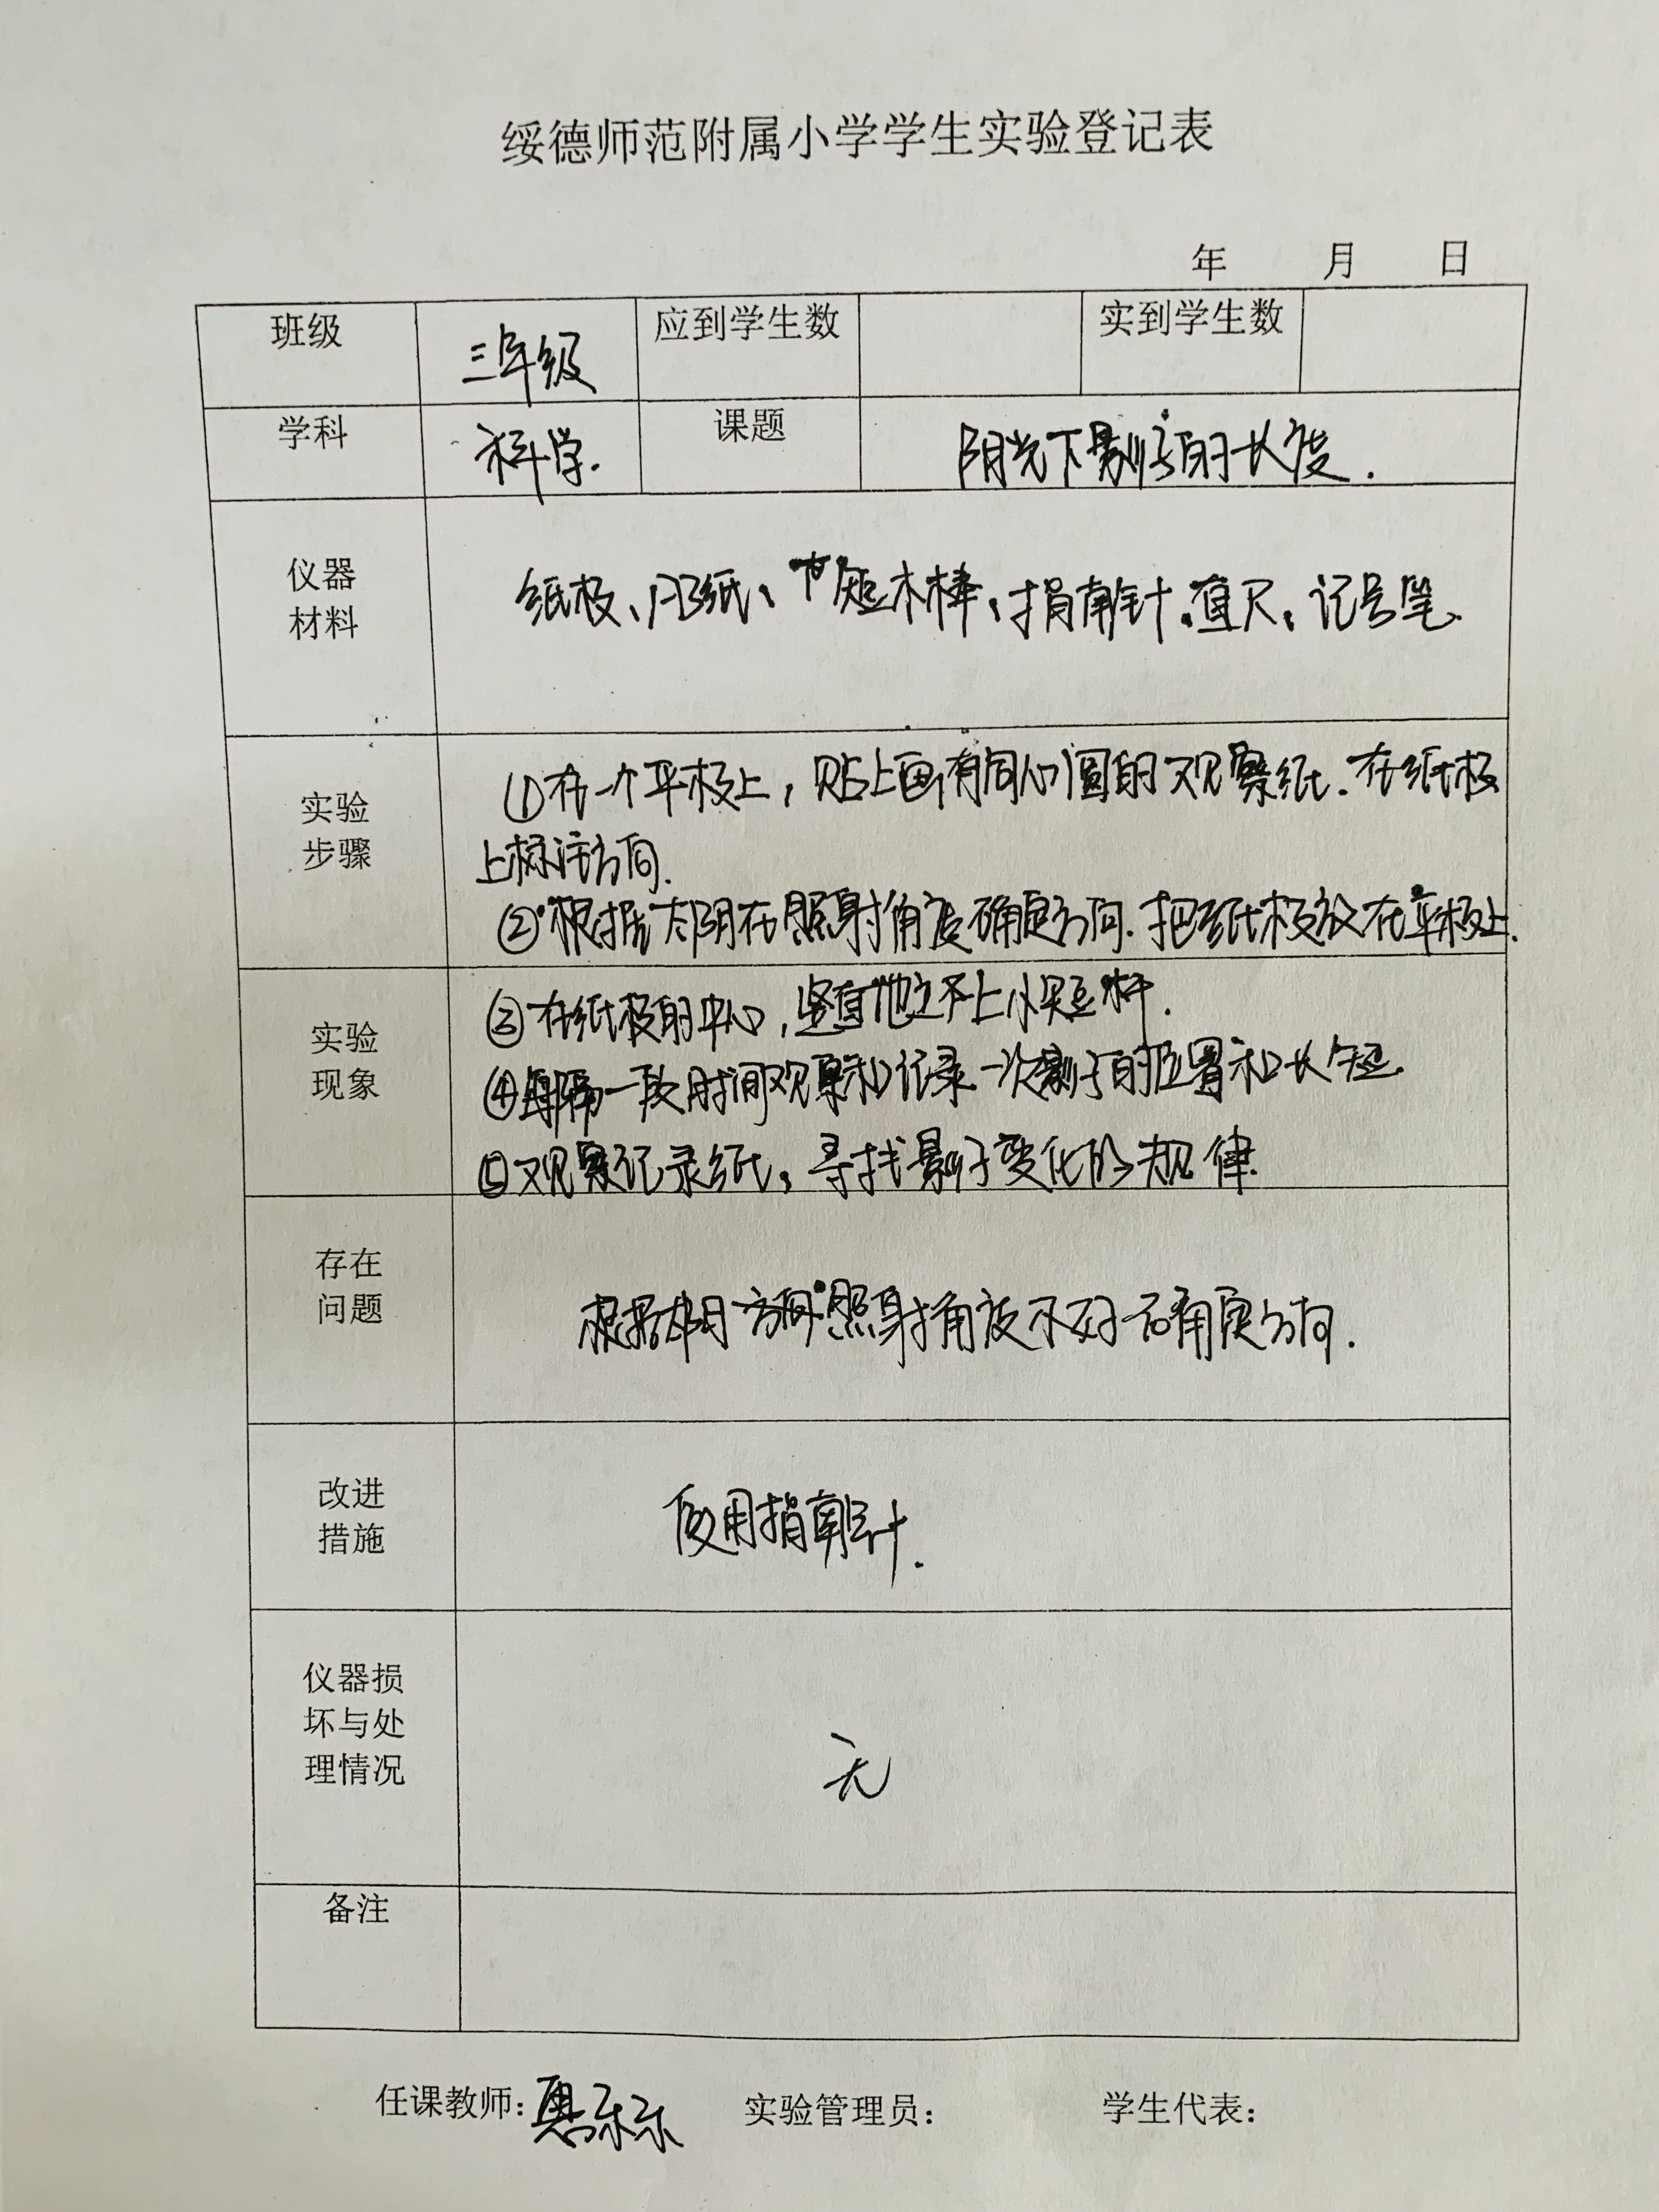 绥德师范附属小学学生实验登记表
年 月 日
班级 三年级 应到学生数 实到学生数
学科 科学. 课题 阳光下影子的长度.
仪器
材料
纸板、 纸、 短木棒、指南针、直尺、记号笔.
实验
步骤
①在一个平板上,贴上画有同心圆的观察纸.在纸板
上标注方向.
②根据太阳在照射角度确定方向.把纸板放在平板上.
实验
现象
③在纸板的中心,竖直地立上小短杆.
④每隔一段时间观察和记录一次影子的位置和长短.
⑤观察记录纸,寻找影子变化的规律.
存在
问题
根据太阳方向照射角度不好确定方向.
改进
措施
使用指南针.
仪器损
坏与处
理情况
无
备注
任课教师: 乐乐 实验管理员: 学生代表: